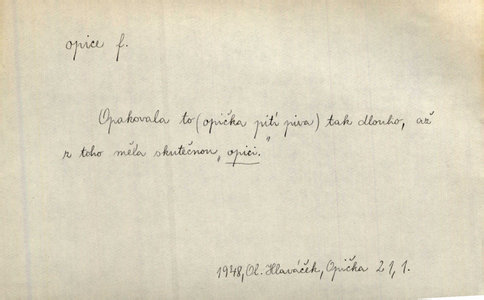 opice f.
Opakovala to (opička pití piva) tak dlouho, až
z toho měla skutečnou „opici.“
1948, Ol. Hlaváček, Opička 21, 1.